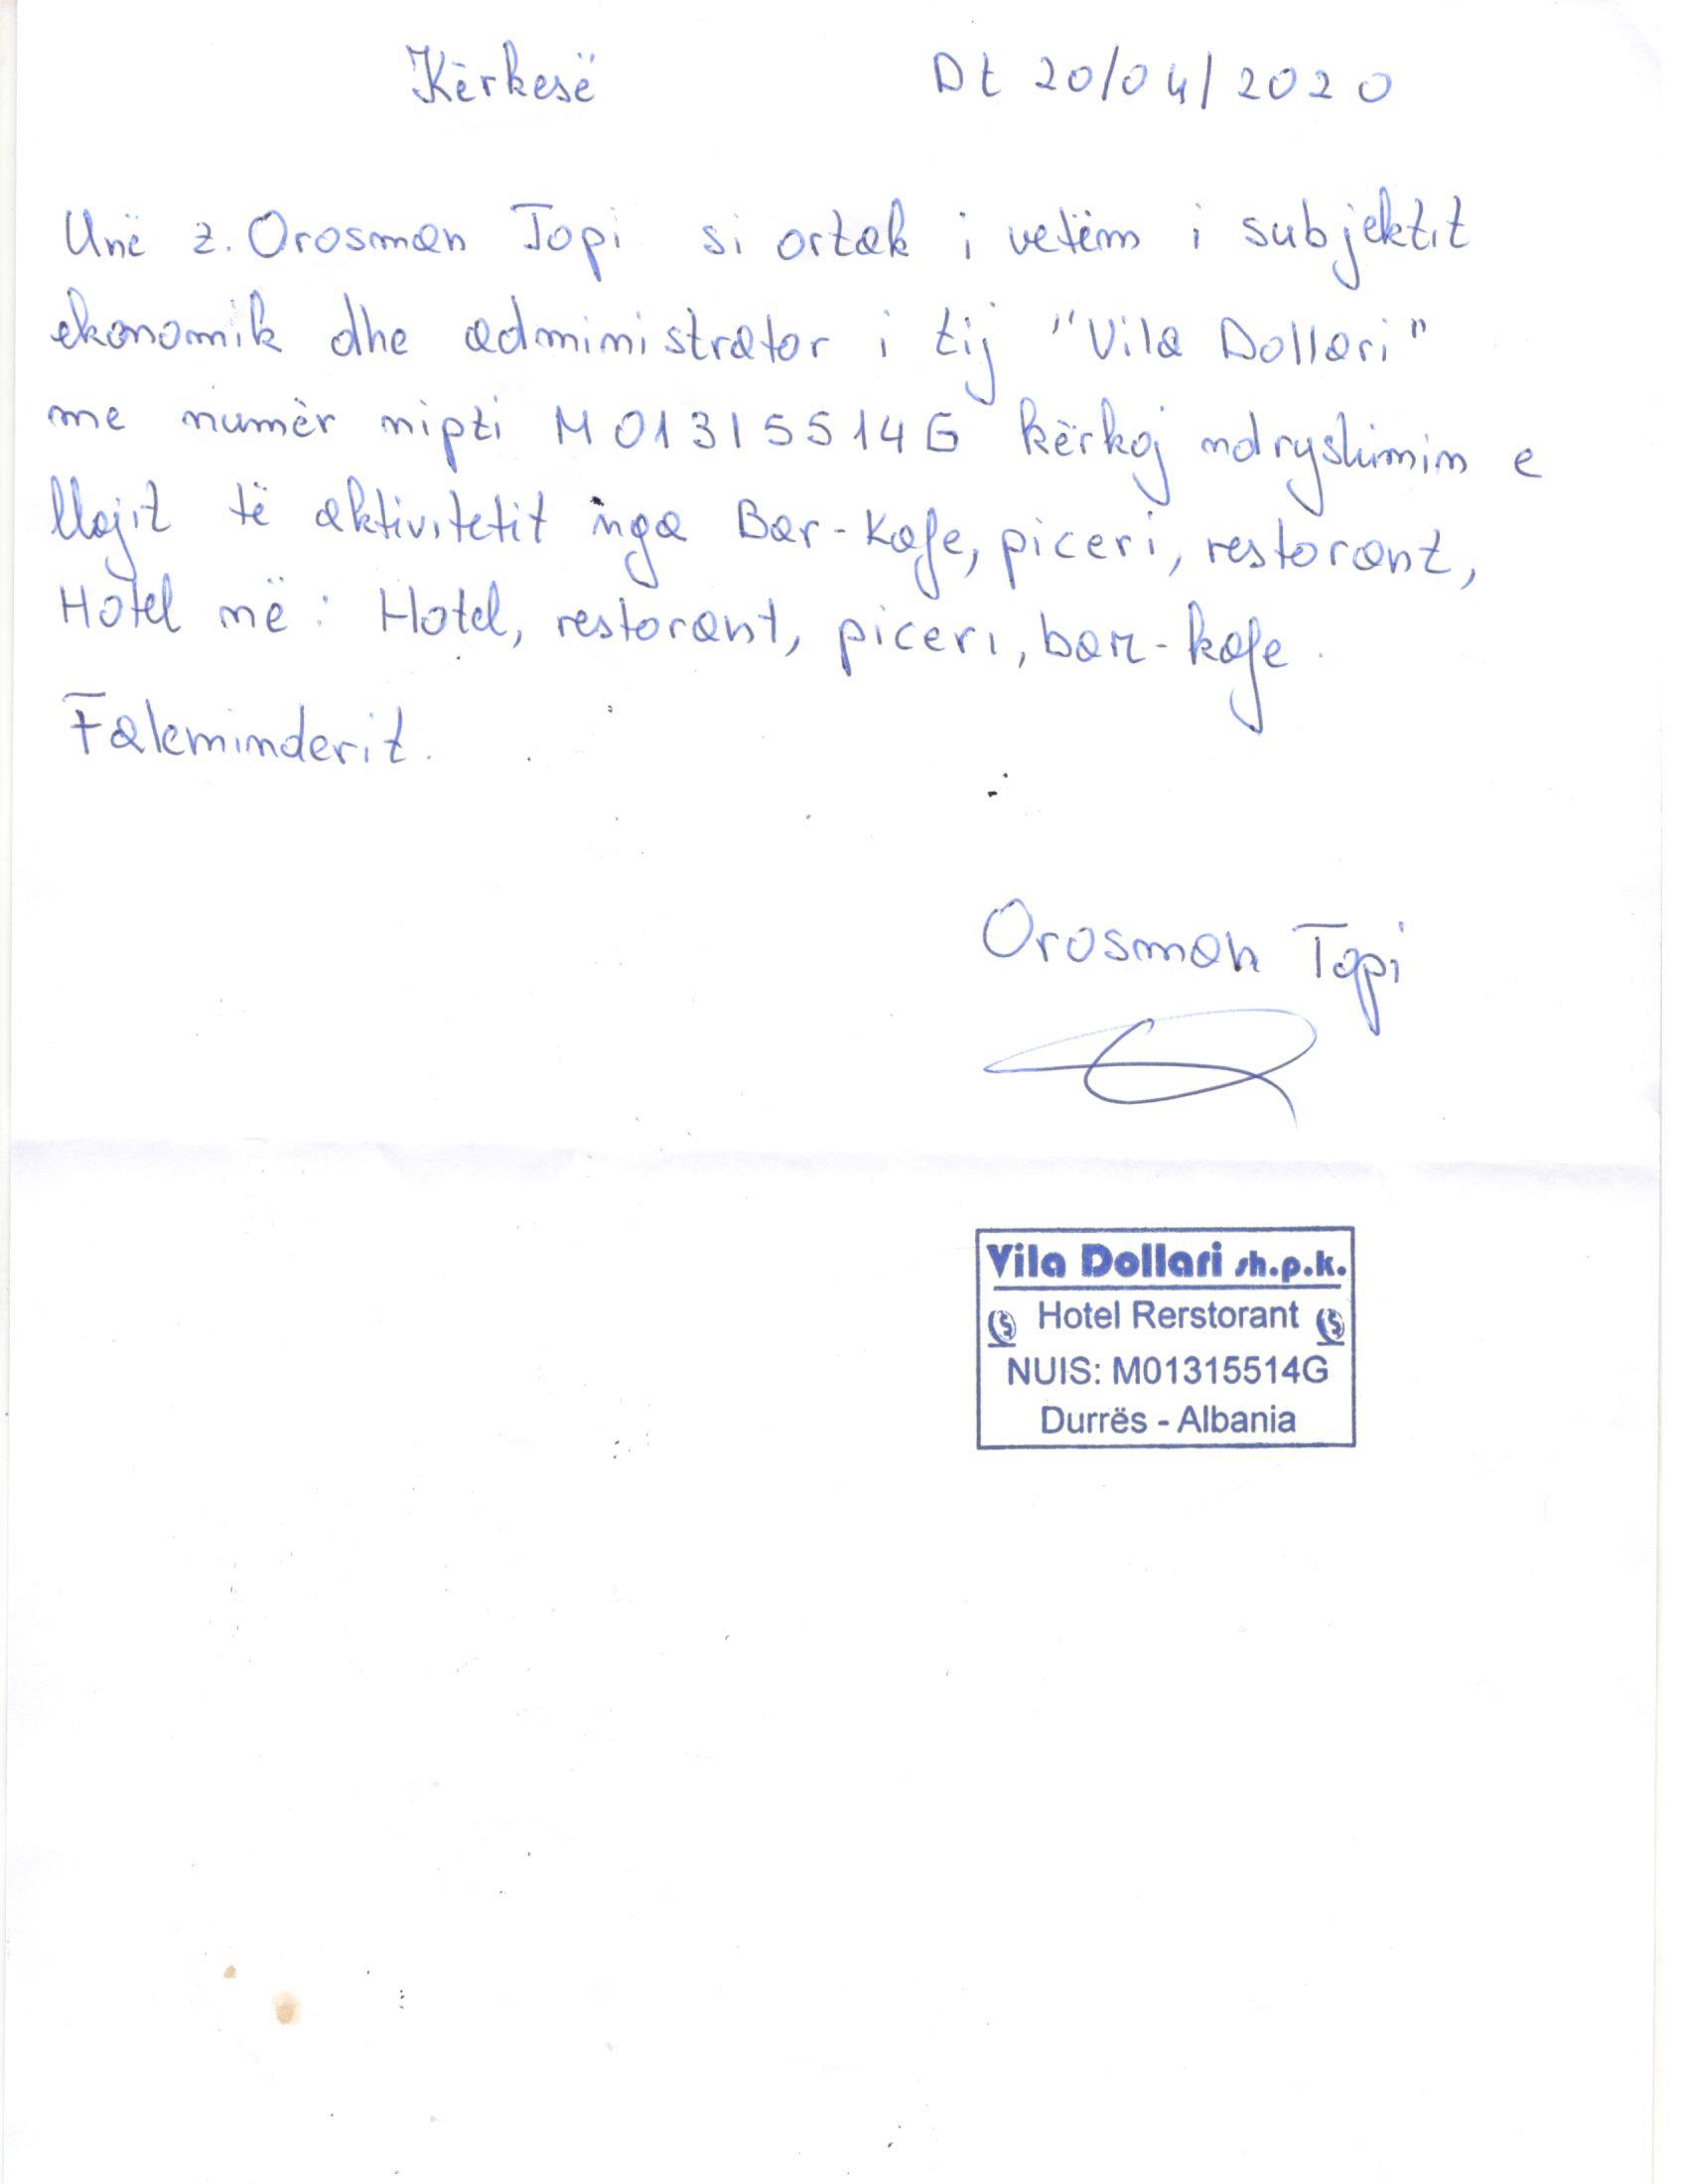 Kërkesë Dt 20/04/2020
Unë z. Orosman Topi si ortak i vetëm i subjektit
ekonomik dhe administrator i tij "Vila Dollari"
me numër nipti M01315514G kërkoj ndryshimin e
llojit të aktivitetit nga Bar-Kafe, piceri, restorant,
Hotel në: Hotel, restorant, piceri, bar-kafe.
Faleminderit.
Orosman Topi
Vila Dollari sh.p.k.
Hotel Rerstorant
NUIS: M01315514G
Durrës - Albania